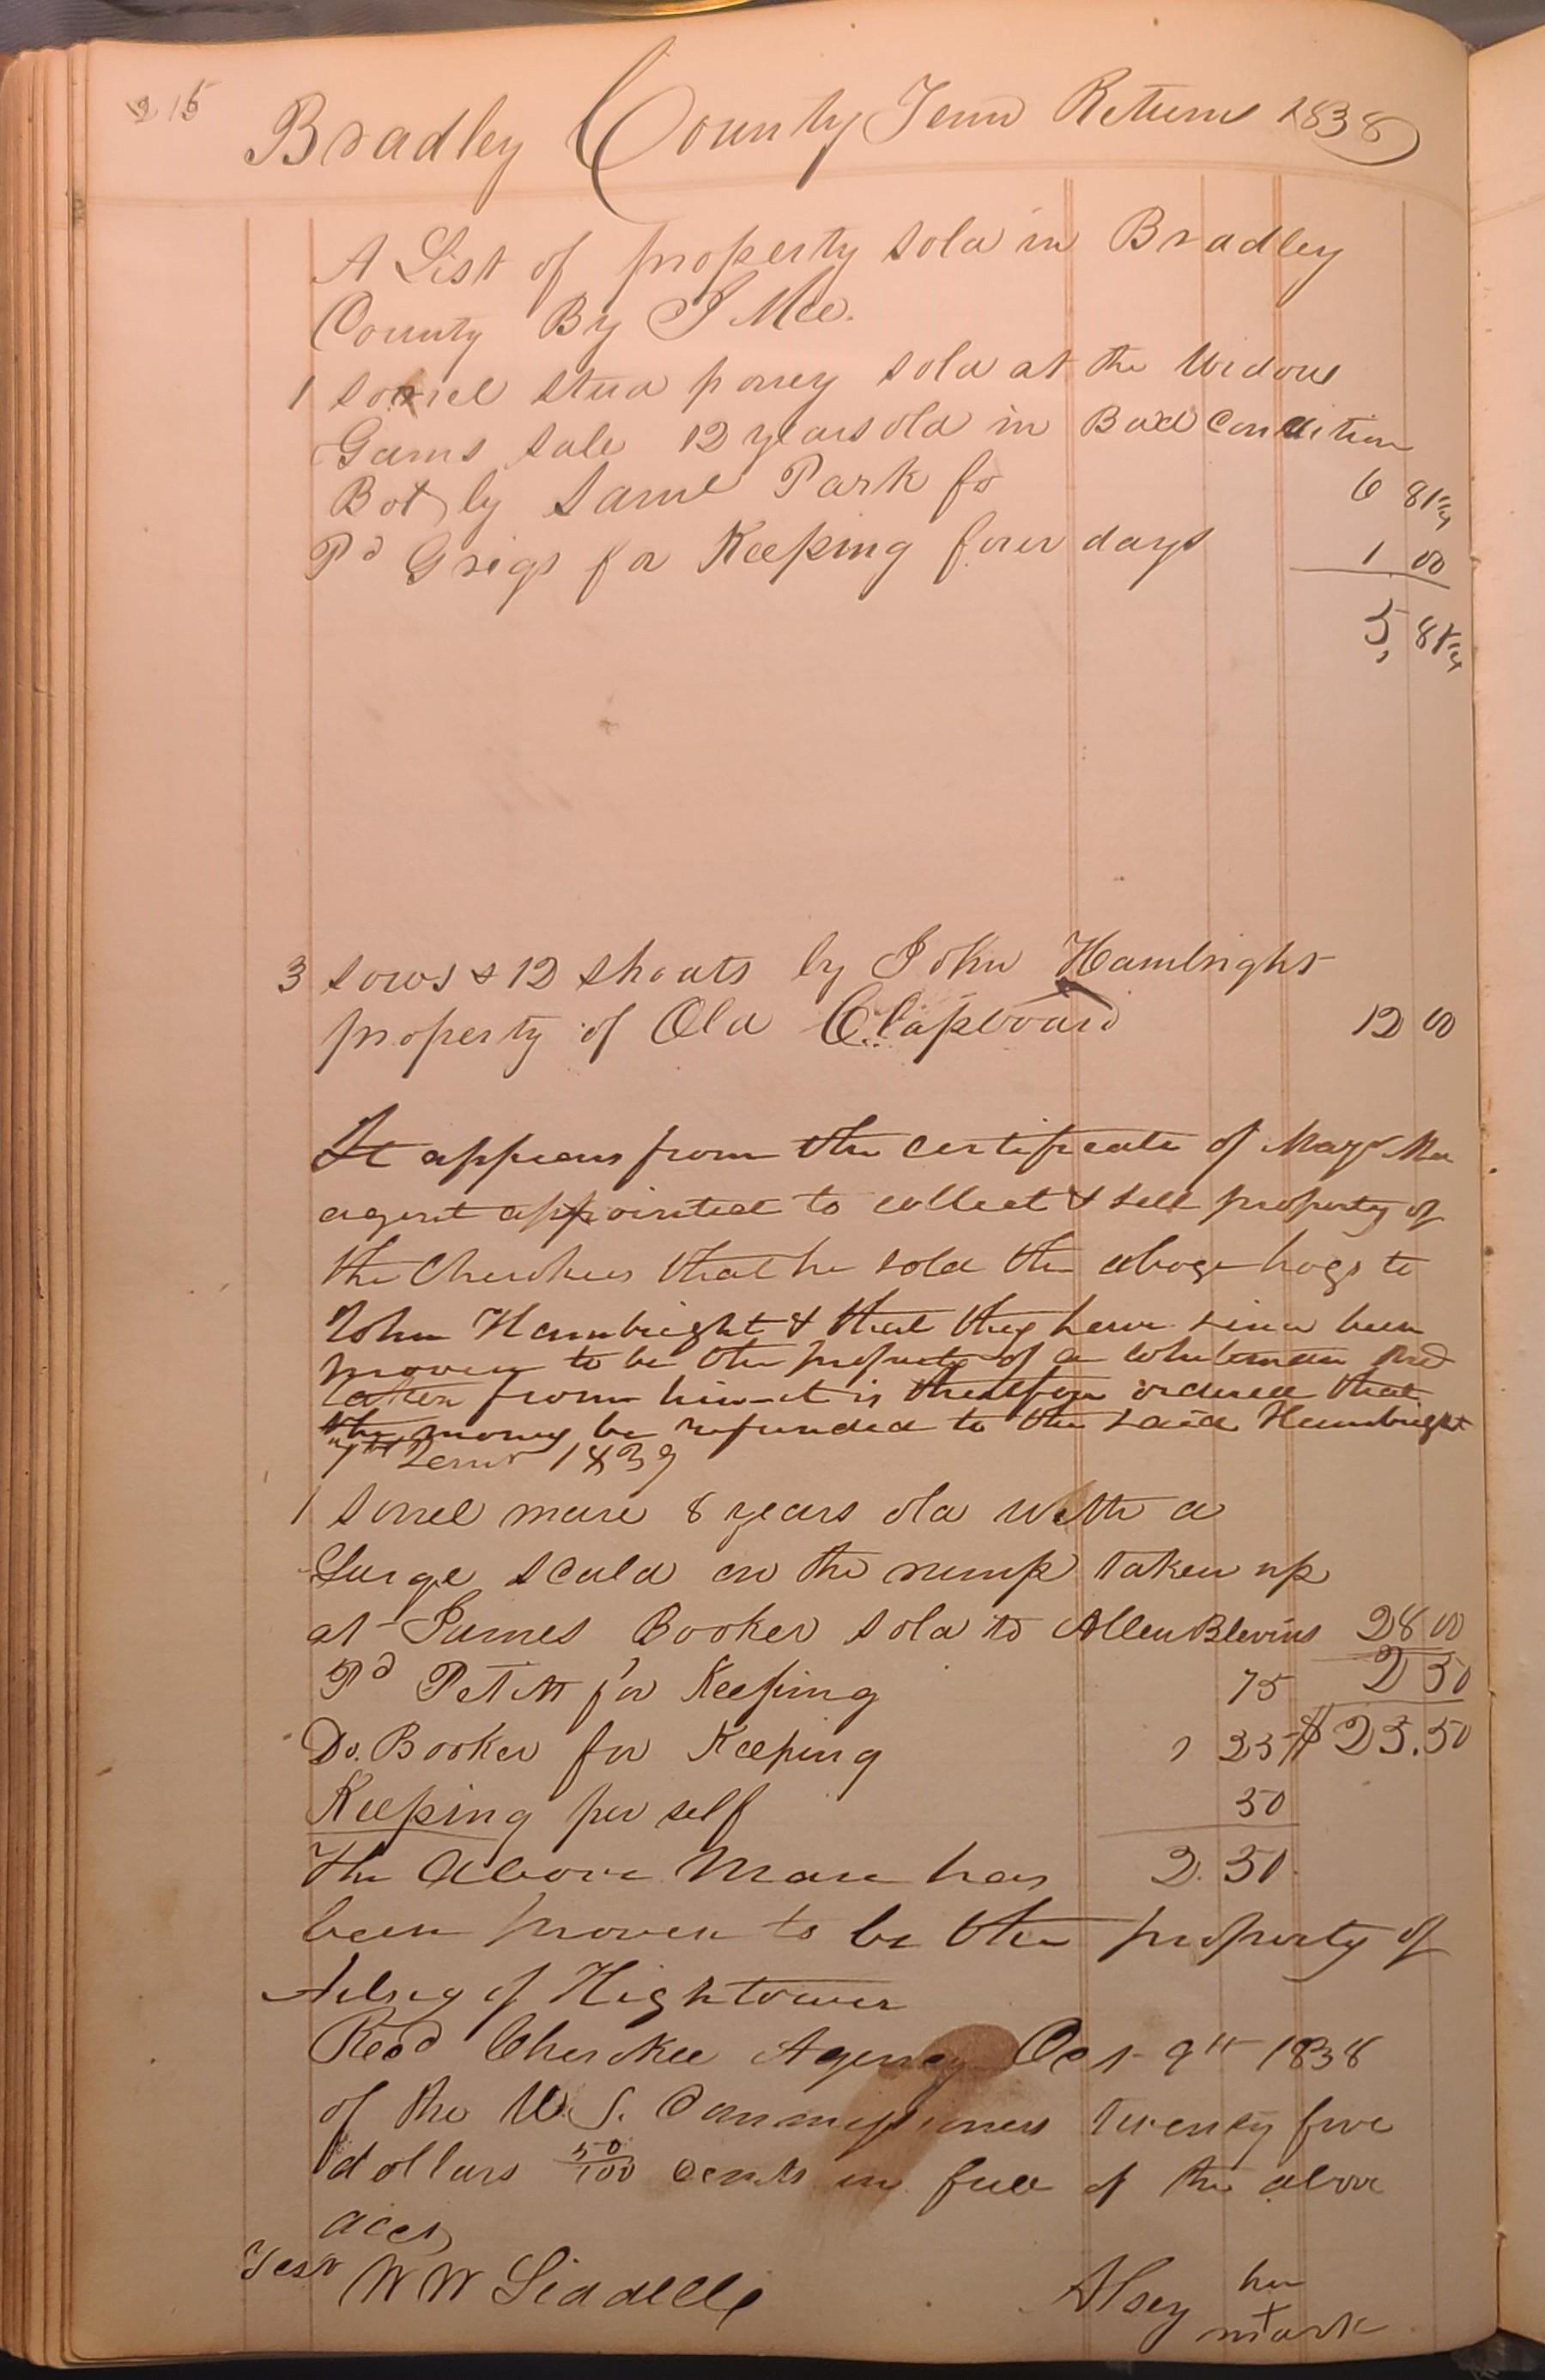 215
Bradley County Tenn Returns 1838
A List of property sold in Bradley
County By J Mee.
1 sorriel stud poney sold at the Widows
Gams sale 12 years old in Bad Condition
Bot by Saml Park fo 6 81 1/4
Pd Grigs for Keeping four days 1 00
5, 81 1/4
3 sows & 12 shoats by John Hambright
property of Old Clapboard 12 00
It appears from the certificate of Majr Mee
agent appointed to collect & sell property of
the Cherokees that he sold the above hogs to
John Hambright & that they have since been
proven to be the property of a whiteman and
taken from him it is therefore ordered that
the money be refunded to the said Hambright
1839
1 sorrel mare 8 years old with a
Large scald on the rump taken up
at James Booker sold to Allen Blevins 28 00
Pd Petitt for Keeping 75 2 50
Do. Booker for Keeping 1 25 $25.50
Keeping per self 50
The Above Mare has 2.50.
been proven to be the property of
of Hightower
Recd Cherokee Agency Oct 9th 1838
of the U.S. Commissioners Twenty five
dollars 50/100 cents in full of the above
acct
Test W W Liddell
Alsey her
x
mark